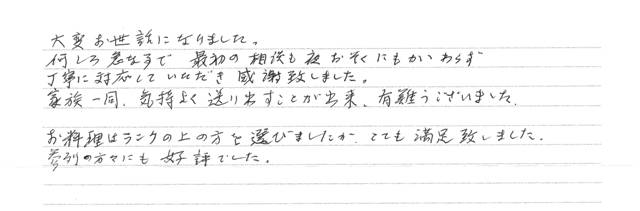 大変お世話になりました。
何しろ急な事で 最初の相談も夜おそくにもかかわらず
丁寧に対応していただき感謝致しました。
家族一同、気持よく送り出すことが出来、有難うございました。
お料理はランクの上の方を選びましたが、とても満足致しました。
参列の方々にも好評でした。